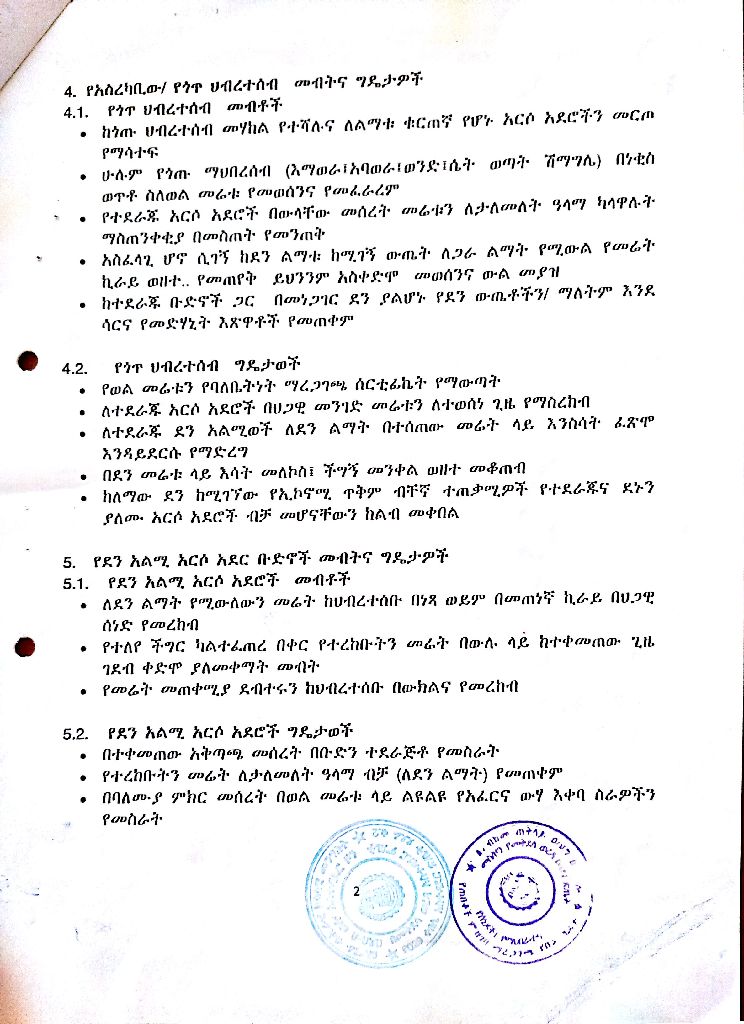 4. የአስረካቢው/ የጎጥ ህብረተሰብ መብትና ግዴታዎች
4.1. የጎጥ ህብረተሰብ መብቶች
• ከጎጡ ህብረተሰብ መሃከል የተሻሉና ለልማቱ ቁርጠኛ የሆኑ አርሶ አደሮችን መርጦ
የማሳተፍ
• ሁሉም የጎጡ ማህበረሰብ (እማወራ፤አባወራ፤ወንድ፤ሴት ወጣት ሽማግሌ) በነቂስ
ወጥቶ ስለወል መሬቱ የመወሰንና የመፈራረም
• የተደራጁ አርሶ አደሮች በውላቸው መሰረት መሬቱን ለታለመለት ዓላማ ካላዋሉት
ማስጠንቀቂያ በመስጠት የመንጠቅ
• አስፈላጊ ሆኖ ሲገኝ ከደን ልማቱ ከሚገኝ ውጤት ለጋራ ልማት የሚውል የመሬት
ኪራይ ወዘተ.. የመጠየቅ ይህንንም አስቀድሞ መወሰንና ውል መያዝ
• ከተደራጁ ቡድኖች ጋር በመነጋገር ደን ያልሆኑ የደን ውጤቶችን/ ማለትም እንደ
ሳርና የመድሃኒት እጽዋቶች የመጠቀም
4.2. የጎጥ ህብረተሰብ ግዴታወች
• የወል መሬቱን የባለቤትነት ማረጋገጫ ሰርቲፊኬት የማውጣት
• ለተደራጁ አርሶ አደሮች በህጋዊ መንገድ መሬቱን ለተወሰነ ጊዜ የማስረከብ
• ለተደራጁ ደን አልሚወች ለደን ልማት በተሰጠው መሬት ላይ እንስሳት ፈጽሞ
እንዳይደርሱ የማድረግ
• በደን መሬቱ ላይ እሳት መለኮስ፤ ችግኝ መንቀል ወዘተ መቆጠብ
• ከለማው ደን ከሚገኘው የኢኮኖሚ ጥቅም ብቸኛ ተጠቃሚዎች የተደራጁና ደኑን
ያለሙ አርሶ አደሮች ብቻ መሆናቸውን ከልብ መቀበል
5. የደን አልሚ አርሶ አደር ቡድኖች መብትና ግዴታዎች
5.1. የደን አልሚ አርሶ አደሮች መብቶች
• ለደን ልማት የሚውለውን መሬት ከህብረተሰቡ በነጻ ወይም በመጠነኛ ኪራይ በህጋዊ
ሰነድ የመረከብ
• የተለየ ችግር ካልተፈጠረ በቀር የተረከቡትን መሬት በውሉ ላይ ከተቀመጠው ጊዜ
ገደብ ቀድሞ ያለመቀማት መብት
• የመሬት መጠቀሚያ ደብተሩን ከህብረተሰቡ በውክልና የመረከብ
5.2. የደን አልሚ አርሶ አደሮች ግዴታወች
• በተቀመጠው አቅጣጫ መሰረት በቡድን ተደራጅቶ የመስራት
• የተረከቡትን መሬት ለታለመለት ዓላማ ብቻ (ለደን ልማት) የመጠቀም
• በባለሙያ ምክር መሰረት በወል መሬቱ ላይ ልዩልዩ የአፈርና ውሃ እቀባ ስራዎችን
የመስራት
2